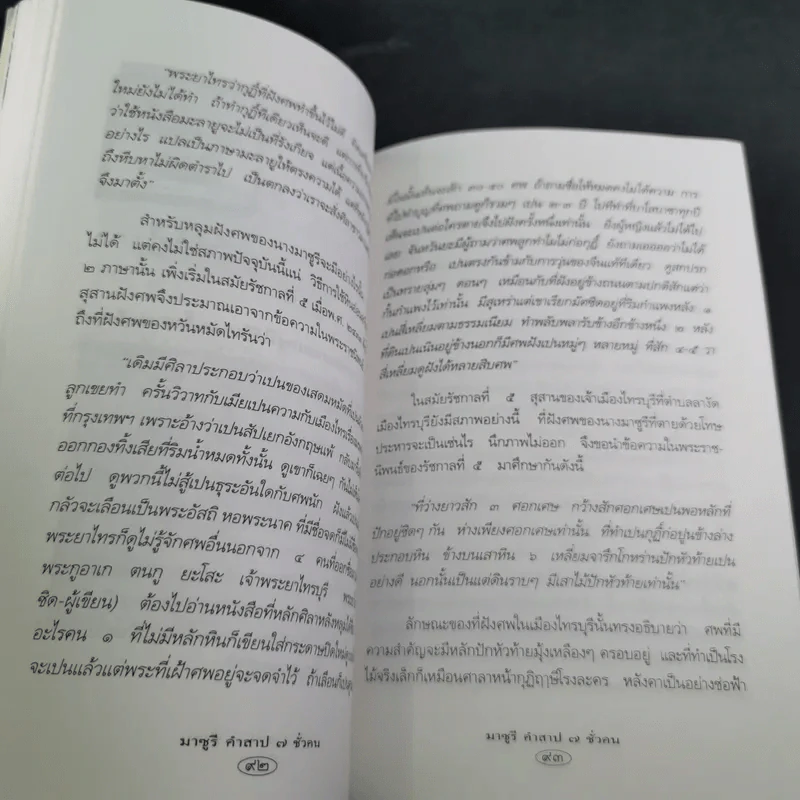 "พระยาไทรว่ากุฏิ์ที่ฝังศพทำขึ้นไว้ไม่ดี
ใหม่ยังไม่ได้ทำ ถ้าทำกุฏิ์ทีเดียวเห็นจะดี
ว่าใช้หนังสือมะลายูจะไม่เป็นที่รังเกียจ
อย่างไร แปลเป็นภาษามะลายูให้ตรงความได้
ถึงหีบหาไม่ผิดตำราไป เป็นตกลงว่าเราจะสั่งศิลา
จึงมาตั้ง"
สำหรับหลุมฝังศพของนางมาซูรีจะมีอย่าง
ไม่ได้ แต่คงไม่ใช่สภาพปัจจุบันนี้แน่ วิธีการใช้
๒ ภาษานั้น เพิ่งเริ่มในสมัยรัชกาลที่ ๕ เมื่อพ.ศ.
สุสานฝังศพจึงประมาณเอาจากข้อความในพระราช
ถึงที่ฝังศพของหวันหมัดไทรันว่า
"เดิมมีศิลาประกอบว่าเปนของเสดมหมัด
ลูกเขยทำ ครั้นวิวาทกับเมียเปนความกับเมืองไทรเรื่อง
ที่กรุงเทพฯ เพราะอ้างว่าเปนสัปเยกอังกฤษแพ้ กลับมา
ออกกองทิ้งเสียที่ริมน้ำหมดทั้งนั้น ดูเขาก็เฉยๆ กัน
ต่อไป ดูพวกนี้ไม่สู้เปนธุระอันใดกับศพนัก ฝังแล้ว
กลัวจะเลือนเป็นพระอัสถิ หอพระนาค ที่มีชื่อจดก็
พระยาไทรก็ดูไม่รู้จักศพอื่นนอกจาก ๔ คนที่ออกชื่อ
พระกูอาเก ตนกู ยะโสะ เจ้าพระยาไทรบุรี
ชิด-ผู้เขียน) ต้องไปอ่านหนังสือที่หลักศิลาหลุม
อะไรคน ๑ ที่ไม่มีหลักหินก็เขียนใส่กระดาษปิด
จะเปนแล้วแต่พระที่เฝ้าศพอยู่จะจดจำไว้ ถ้าเลือนก็
มาซูรี คำสาป ๗ ชั่วคน
๙๒
มีในนั้นเห็นจะสัก ๓๐-๔๐ ศพ ถ้าถามชื่อให้หมดคงไม่ได้ความ การ
ที่ไปทำบุญค้นพบถามซูกี่รวมๆ เปน ๒-๓ ปี
เดินจะเปนต่อใครตายจึงไปฝังครั้งหนึ่งเท่านั้น ยิ่งผู้หญิงแล้วไม่ได้ไป
เลย จันตวันยะมีผู้ถามว่าศพลูกทำไมไม่ก่อกุฏิ์ ยังถามเออออว่าไม่ได้
ก่อดอกหรือ เปนตรงกันข้ามกับการวุ่นของจีนแท้ทีเดียว ดูสกปรก
เปนทรายลุ่มๆ ดอนๆ เหมือนกับที่ฝังอยู่ข้างถนนตามปกติสักแต่ว่า
กั้นกำแพงไว้เท่านั้น มีสุเหร่าแต่เขาเรียกมัดซิดอยู่ที่ริมกำแพงหลัง ๑
เปนสี่เหลี่ยมตามธรรมเนียม ทำพลับพลารับข้างอีกข้างหนึ่ง ๒ หลัง
ที่ดินเปนเนินอยู่ข้างนอกก็มีศพฝังเปนหมู่ๆ หลายหมู่ ที่สัก ๔-๕ วา
สี่เหลี่ยมดูฝังได้หลายสิบศพ"
ในสมัยรัชกาลที่ ๕ สุสานของเจ้าเมืองไทรบุรีที่ตำบลลางัด
เมืองไทรบุรียังมีสภาพอย่างนี้ ที่ฝังศพของนางมาซูรีที่ตายด้วยโทษ
ประหารจะเป็นเช่นไร นึกภาพไม่ออก จึงขอนำข้อความในพระราช-
นิพนธ์ของรัชกาลที่ ๕ มาศึกษากันดังนี้
"ที่ว่างยาวสัก ๓ ศอกเศษ กว้างสักศอกเศษเปนพอหลักที่
ปักอยู่ชิดๆ กัน ห่างเพียงศอกเศษเท่านั้น ที่ทำเปนกุฏิ์ก่อปูนข้างล่าง
ประกอบหิน ข้างบนเสาหิน ๖ เหลี่ยมจารึกโกหร่านปักหัวท้ายเปน
อย่างดี นอกนั้นเป็นแต่ดินราบๆ มีเสาไม้ปักหัวท้ายเท่านั้น"
ลักษณะของที่ฝังศพในเมืองไทรบุรีนั้นทรงอธิบายว่า ศพที่มี
ความสำคัญจะมีหลักปักหัวท้ายมุ้งเหลืองๆ ครอบอยู่ และที่ทำเป็นโรง
ไม้จริงเล็กก็เหมือนศาลาหน้ากุฏิฤๅษีโรงละคร หลังคาเป็นอย่างช่อฟ้า
มาซูรี คำสาป ๗ ชั่วคน
๙๓